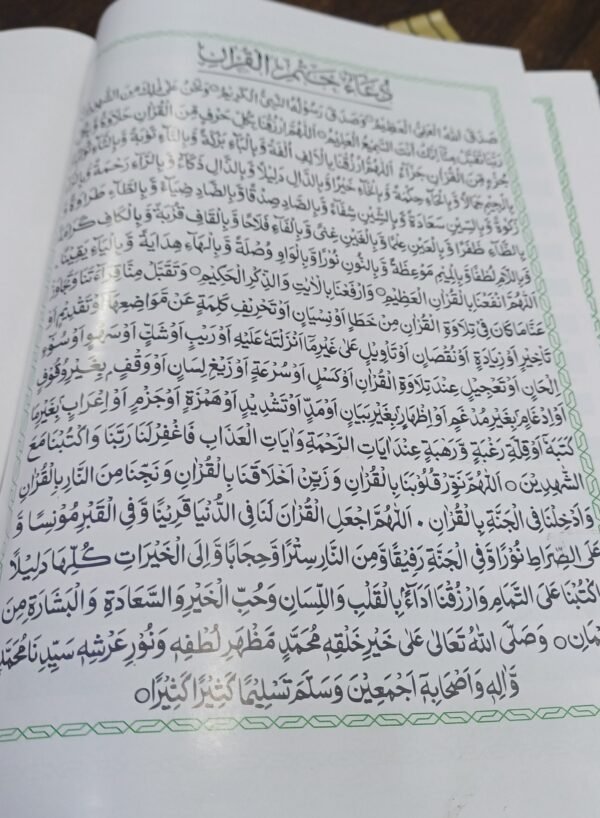 دُعَاءُ خَتْمِ الْقُرْاٰنِ
صَدَقَ اللّٰهُ الْعَلِىُّ الْعَظِيْمُ○ وَصَدَقَ رَسُوْلُهُ النَّبِىُّ الْكَرِيْمُ○ وَنَحْنُ عَلٰى ذٰلِكَ مِنَ الشّٰهِدِيْنَ
رَبَّنَا تَقَبَّلْ مِنَّا اِنَّكَ اَنْتَ السَّمِيْعُ الْعَلِيْمُ○ اَللّٰهُمَّ ارْزُقْنَا بِكُلِّ حَرْفٍ مِّنَ الْقُرْاٰنِ حَلَاوَةً وَّ بِكُلِّ
جُزْءٍ مِّنَ الْقُرْاٰنِ جَزَآءً اَللّٰهُمَّ ارْزُقْنَا بِالْاَلِفِ اُلْفَةً وَّ بِالْبَآءِ بَرَكَةً وَّ بِالتَّآءِ تَوْبَةً وَّ بِالثَّآءِ
بِالْجِيْمِ جَمَالًا وَّ بِالْحَآءِ حِكْمَةً وَّ بِالْخَآءِ خَيْرًا وَّ بِالدَّالِ دَلِيْلًا وَّ بِالذَّالِ ذَكَآءً وَّ بِالرَّآءِ رَحْمَةً
زَكٰوةً وَّ بِالسِّيْنِ سَعَادَةً وَّ بِالشِّيْنِ شِفَآءً وَّ بِالصَّادِ صِدْقًا وَّ بِالضَّادِ ضِيَآءً وَّ بِالطَّآءِ طَرَاوَةً وَّ
بِالظَّآءِ ظَفَرًا وَّ بِالْعَيْنِ عِلْمًا وَّ بِالْغَيْنِ غِنًى وَّ بِالْفَآءِ فَلَاحًا وَّ بِالْقَافِ قُرْبَةً وَّ بِالْكَافِ كَرَامَةً
وَّ بِاللَّامِ لُطْفًا وَّ بِالْمِيْمِ مَوْعِظَةً وَّ بِالنُّوْنِ نُوْرًا وَّ بِالْوَاوِ وُصْلَةً وَّ بِالْهَآءِ هِدَايَةً وَّ بِالْيَآءِ يَقِيْنًا
اَللّٰهُمَّ انْفَعْنَا بِالْقُرْاٰنِ الْعَظِيْمِ○ وَارْفَعْنَا بِالْاٰيٰتِ وَالذِّكْرِ الْحَكِيْمِ○ وَتَقَبَّلْ مِنَّا قِرَآءَتَنَا وَتَجَاوَزْ
عَنَّا مَا كَانَ فِىْ تِلَاوَةِ الْقُرْاٰنِ مِنْ خَطَاٍ اَوْ نِسْيَانٍ اَوْ تَحْرِيْفِ كَلِمَةٍ عَنْ مَّوَاضِعِهَا اَوْ تَقْدِيْمٍ اَوْ
تَاْخِيْرٍ اَوْ زِيَادَةٍ اَوْ نُقْصَانٍ اَوْ تَاْوِيْلٍ عَلٰى غَيْرِ مَا اَنْزَلْتَهٗ عَلَيْهِ اَوْ رَيْبٍ اَوْ شَكٍّ اَوْ سَهْوٍ اَوْ سُوْٓءِ
اِلْحَانٍ اَوْ تَعْجِيْلٍ عِنْدَ تِلَاوَةِ الْقُرْاٰنِ اَوْ كَسَلٍ اَوْ سُرْعَةٍ اَوْ زَيْغِ لِسَانٍ اَوْ وَقْفٍ بِغَيْرِ وُقُوْفٍ
اَوْ اِدْغَامٍ بِغَيْرِ مُدْغَمٍ اَوْ اِظْهَارٍ بِغَيْرِ بَيَانٍ اَوْ مَدٍّ اَوْ تَشْدِيْدٍ اَوْ هَمْزَةٍ اَوْ جَزْمٍ اَوْ اِعْرَابٍ بِغَيْرِ مَا
كَتَبَهٗ اَوْ قِلَّةِ رَغْبَةٍ وَّ رَهْبَةٍ عِنْدَ اٰيَاتِ الرَّحْمَةِ وَاٰيَاتِ الْعَذَابِ فَاغْفِرْ لَنَا رَبَّنَا وَاكْتُبْنَا مَعَ
الشّٰهِدِيْنَ○ اَللّٰهُمَّ نَوِّرْ قُلُوْبَنَا بِالْقُرْاٰنِ وَ زَيِّنْ اَخْلَاقَنَا بِالْقُرْاٰنِ وَ نَجِّنَا مِنَ النَّارِ بِالْقُرْاٰنِ
وَ اَدْخِلْنَا فِى الْجَنَّةِ بِالْقُرْاٰنِ ۔ اَللّٰهُمَّ اجْعَلِ الْقُرْاٰنَ لَنَا فِى الدُّنْيَا قَرِيْنًا وَّ فِى الْقَبْرِ مُوْنِسًا وَّ
عَلَى الصِّرَاطِ نُوْرًا وَّ فِى الْجَنَّةِ رَفِيْقًا وَّ مِنَ النَّارِ سِتْرًا وَّ حِجَابًا وَّ اِلَى الْخَيْرَاتِ كُلِّهَا دَلِيْلًا
اكْتُبْنَا عَلَى التَّمَامِ وَارْزُقْنَا اَدَآءً بِالْقَلْبِ وَاللِّسَانِ وَحُبِّ الْخَيْرِ وَالسَّعَادَةِ وَالْبَشَارَةِ مِنَ
○ وَصَلَّى اللّٰهُ تَعَالٰى عَلٰى خَيْرِ خَلْقِهٖ مُحَمَّدٍ مَّظْهَرِ لُطْفِهٖ وَنُوْرِ عَرْشِهٖ سَيِّدِنَا مُحَمَّدٍ
وَّاٰلِهٖ وَاَصْحَابِهٖٓ اَجْمَعِيْنَ وَسَلَّمَ تَسْلِيْمًا كَثِيْرًا كَثِيْرًا○